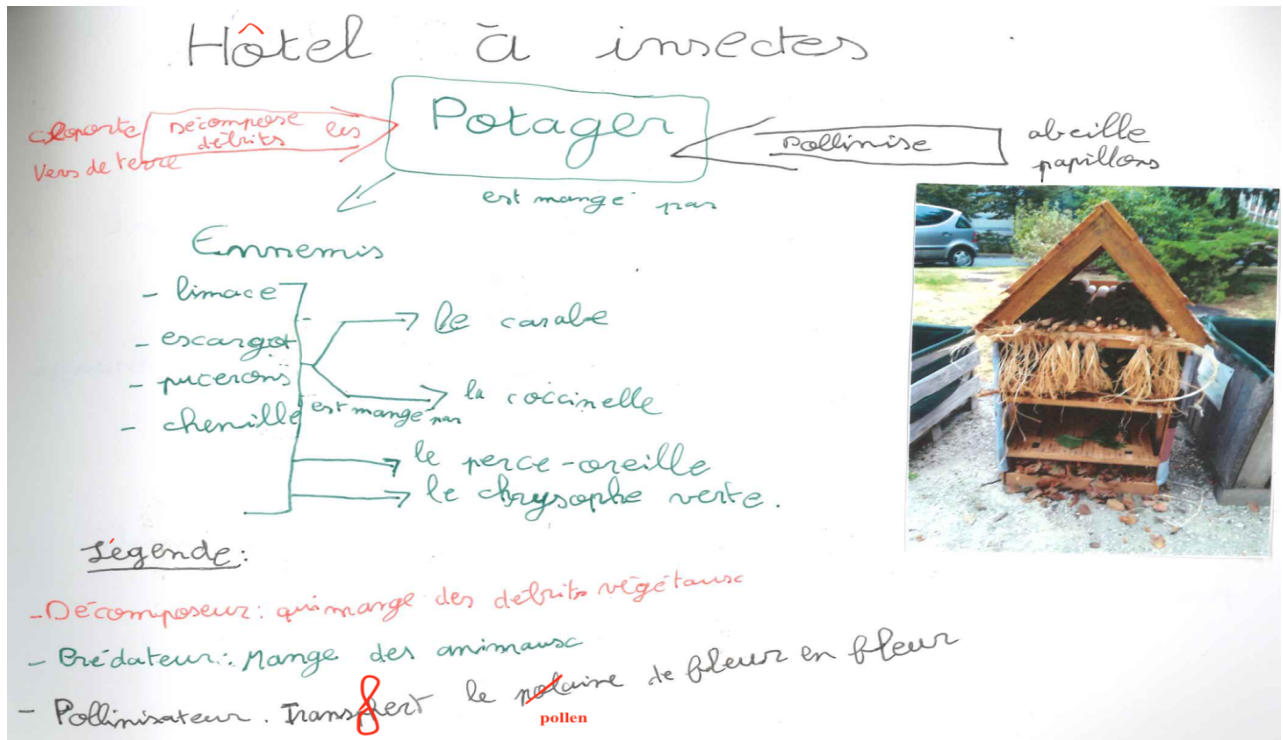 Hôtel à insectes
Potager
cloporte
Vers de terre
Décompose les
détrits
Pollinise
abeille
papillons
est mangé par
Ennemis
- limace
- escargot
- pucerons
- chenille
est mangé par
le carabe
la coccinelle
le perce-oreille
le chrysophe verte.
Légende:
- Décomposeur: qui mange des détrits végétaux
- Prédateur: Mange des animaux
- Pollinisateur. Transfert le polaine de fleur en fleur
pollen